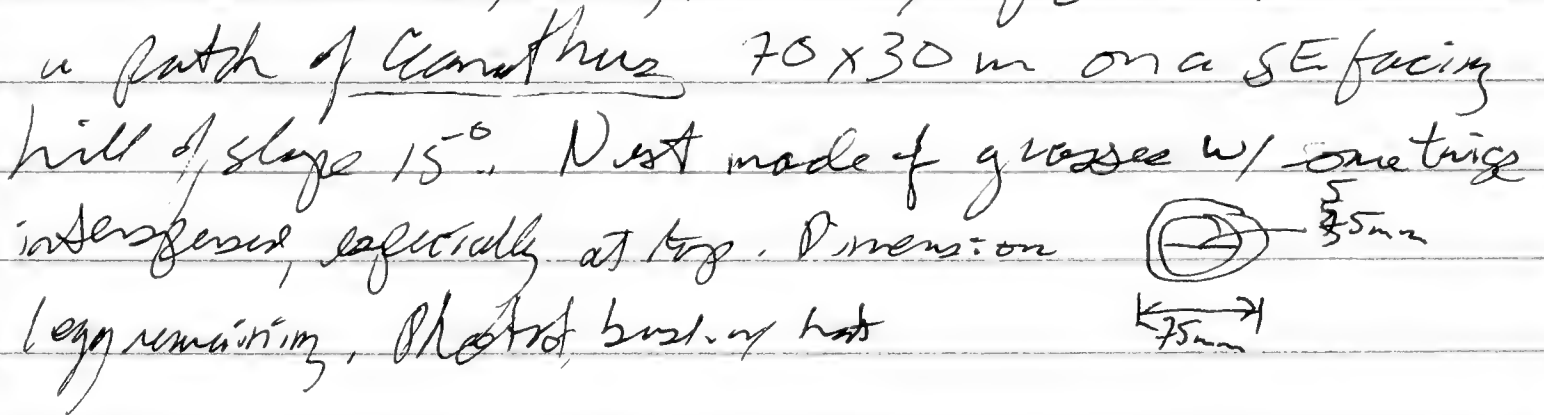 a patch of Ceanothus 70x30 m on a SE facing
hill of slope 15°. Nest made of grasses w/ some twigs
interspersed, especially at top. Dimension
1 egg remaining. Photo of bush w/ hat
75mm